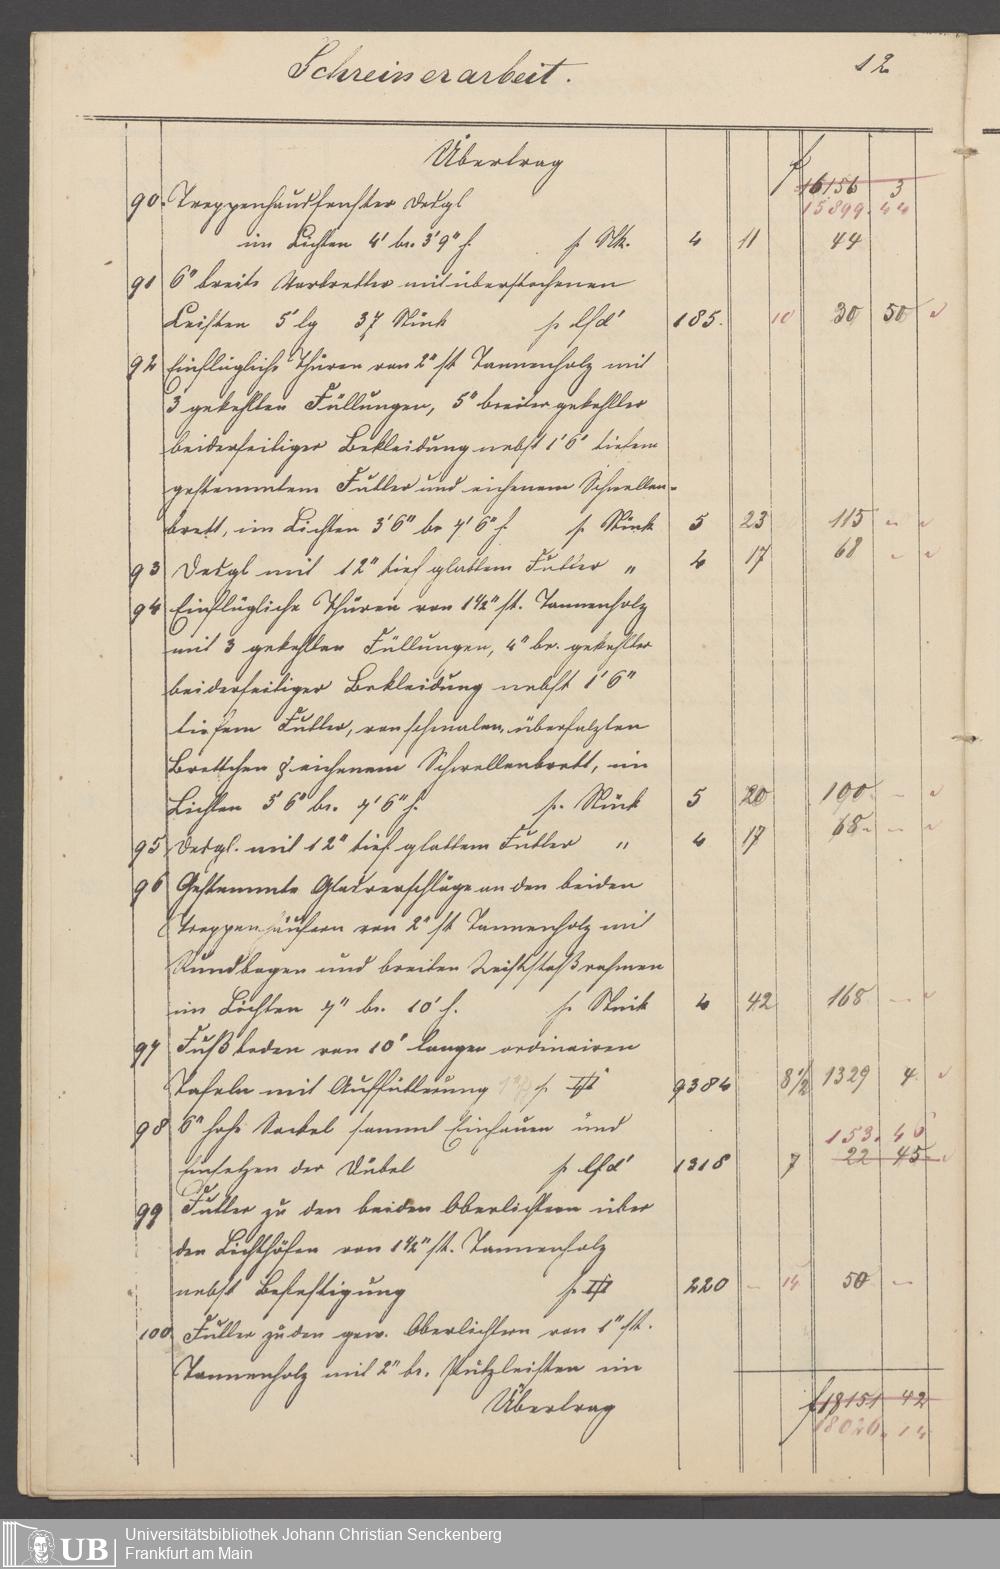 Schreinerarbeit. 12
Übertrag f 16156 3
15899. 44
90. Treppenhausfenster desgl
im Lichten 4' br. 3'9" h. p. Stk. 4 11 44
91 6" breite Vorbretter mit überstochenen
Leisten 5' lg 37 Stück p. lfd' 185. 10 30 50
92 Einflügliche Thüren von 2" st Tannenholz mit
3 gekehlten Füllungen, 5" breiter gekehlter
beiderseitiger Bekleidung nebst 1'6" tiefem
gestemmtem Futter und eichenem Schwellen-
brett, im Lichten 3'6" br 7'6" h. p. Stück 5 23 115 -
93 Desgl mit 12" tief glattem Futter " 4 17 68 -
94 Einflügliche Thüren von 1 1/2" st. Tannenholz
mit 3 gekehlten Füllungen, 4" br. gekehlter
beiderseitiger Bekleidung nebst 1'6"
tiefem Futter, von schmalen, überfalzten
Brettchen & eichenem Schwellenbrett, im
Lichten 3'6" br. 7'6" h. p. Stück 5 20 100 -
95 Desgl. mit 12" tief glattem Futter " 4 17 68 -
96 Gestemmte Glasverschläge an den beiden
Treppenhäusern von 2" st Tannenholz mit
Rundbogen und breiten rahmen
im Lichten 7" br. 10' h. p. Stück 4 42 168 -
97 Fußboden von 10' langen ordinairen
Tafeln mit Auffütterung p. 9384 8 1/2 1329 4
98 6" hohe Sockel sammt Einhauen und 153. 46
Einsetzen der Dübel p. lfd' 1318 7 22 45
99 Futter zu den beiden Oberlichtern über
den Lichthöfen von 1 1/2" st. Tannenholz
nebst Befestigung p. 220 - 14 50 -
100 Futter zu den gew. Oberlichtern von 1" st.
Tannenholz mit 2" br. Putzleisten im
Übertrag f 18151 42
18026. 14
UB
Universitätsbibliothek Johann Christian Senckenberg
Frankfurt am Main